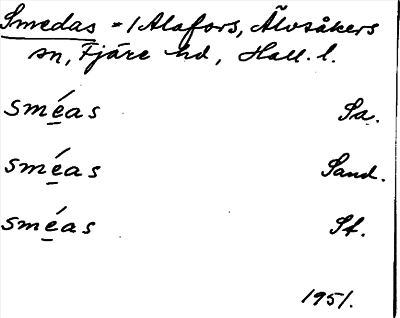 Smedas =/ Alafors, Älvsåkers
sn, Fjäre hd, Hall. l.
sméas Sa.
sméas Sand.
sméas St.
1951.